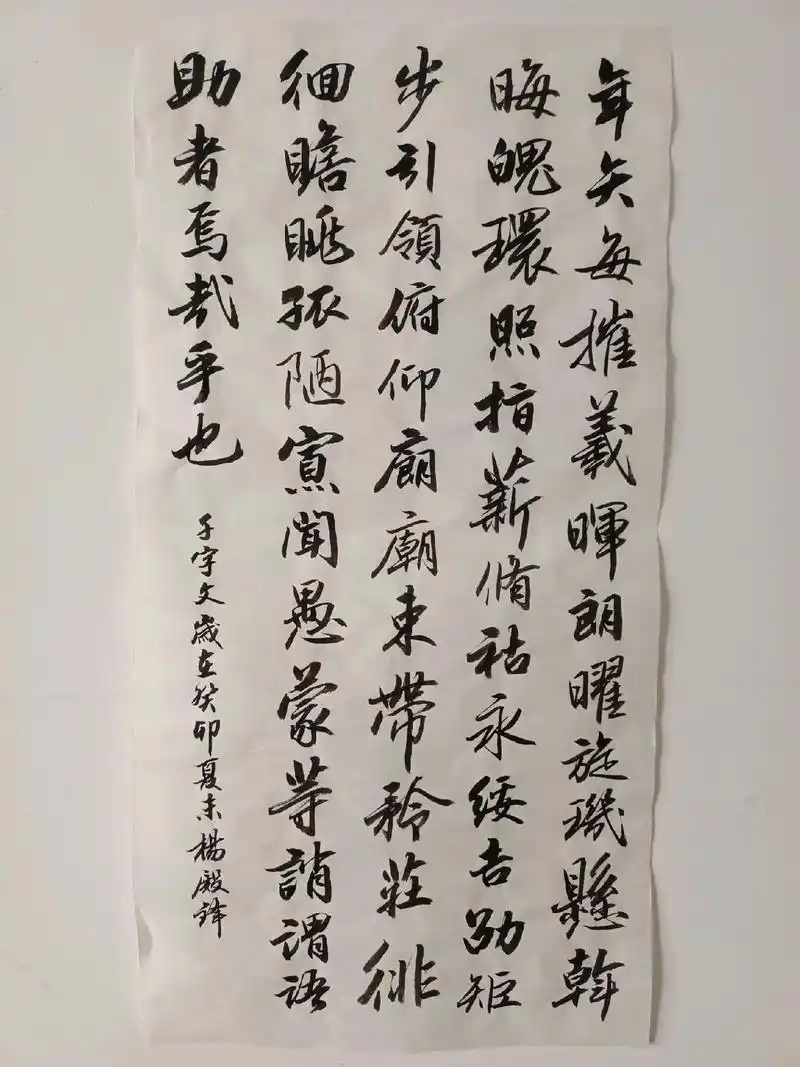 年矢每摧羲暉朗曜旋璣懸斡
晦魄環照指薪脩祜永綏吉劭矩
步引領俯仰廊廟束帶矜莊徘
徊瞻眺孤陋寡聞愚蒙等誚謂語
助者焉哉乎也
千字文歲在癸卯夏末楊殿鋒